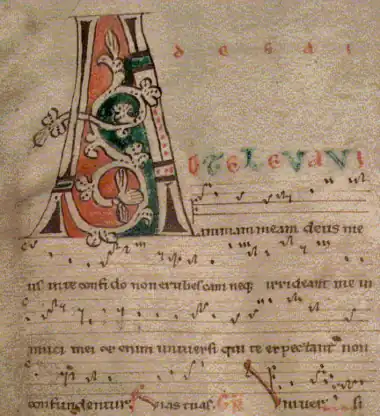 A
D TE LEVAVI
animam meam deus me
us in te confido non erubescam neq; irrideant me in
imici mei etenim universi qui te expectant non
confundentur. Vias tuas. Univer si